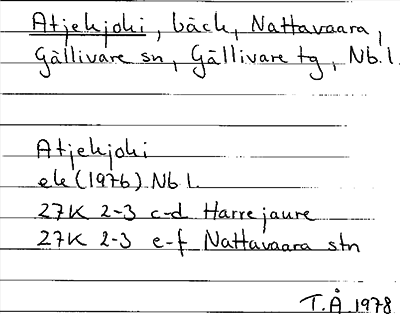 Atjekjoki, bäck, Nattavaara,
Gällivare sn, Gällivare tg, Nb.l.
Atjekjoki
ek (1976) Nb l.
27K 2-3 c-d Harrejaure
27K 2-3 e-f Nattavaara stn
T.Å. 1978